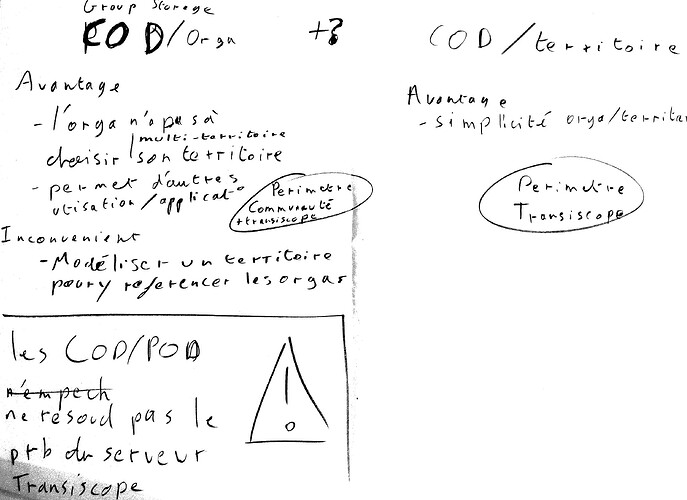 Group Storage
COD/Orga
+?
Avantage
- l'orga n'a pas à
multi-territoire
choisir son territoire
- permet d'autres
utisation/applicat°
Perimetre
Communauté
+transiscope
Inconvenient
- Modéliser un territoire
pour y referencer les orgas
les COD/POD
n'empech
ne resoud pas le
prb du serveur
Transiscope
!
COD/territoire
Avantage
- simplicité orga/territoi
Perimetre
Transiscope